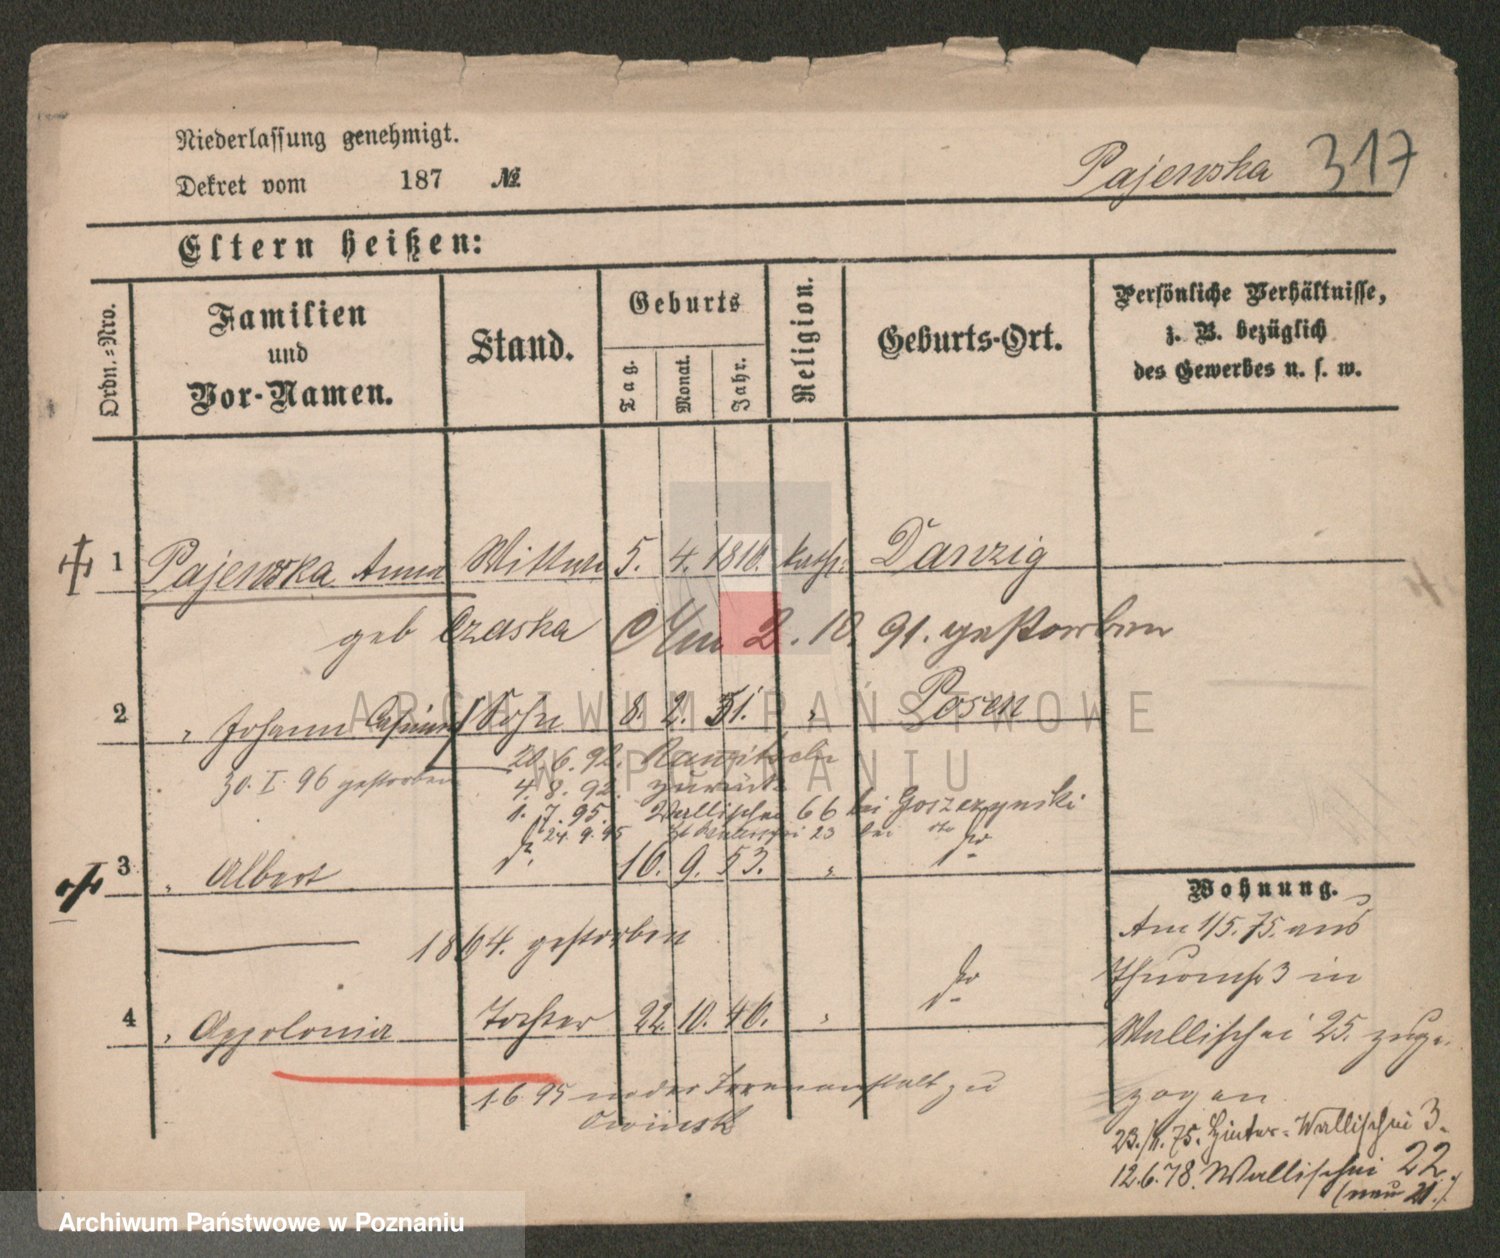 Niederlassung genehmigt.
Dekret vom 187 №
Pajewska 317
Eltern heißen:
Ordn.=Nro.
Familien
und
Vor-Namen.
Stand.
Geburts
Tag.
Monat.
Jahr.
Religion.
Geburts-Ort.
Persönliche Verhältnisse,
z. B. bezüglich
des Gewerbes u. s. w.
1 Pajewska Anna Wittwe 5. 4. 1810. kath. Danzig
geb Czaska Am 2. 10. 91. gestorben
2 " Johann Sohn 8. 2. 51. " Posen
30. I. 96 gestorben
20. 6. 92. Rawitsch
4. 8. 92. zurück
1. 7. 95. Wallischei 66 bei Goszczynski
24. 9. 95 23 bei
3 " Albert do. 16. 9. 53. " do.
1864. gestorben
4 " Appolonia Tochter 22. 10. 46. " do.
1 6 95 in der Irrenanstalt zu
Owinsk
Wohnung.
Am 1/5. 75. aus
3 in
Wallischei 25. zuge-
zogen
23./11. 75. Hinter-Wallischei 3.
12.6.78. Wallischei 22.
(neu 21.)
ARCHIWUM PAŃSTWOWE
W POZNANIU
Archiwum Państwowe w Poznaniu